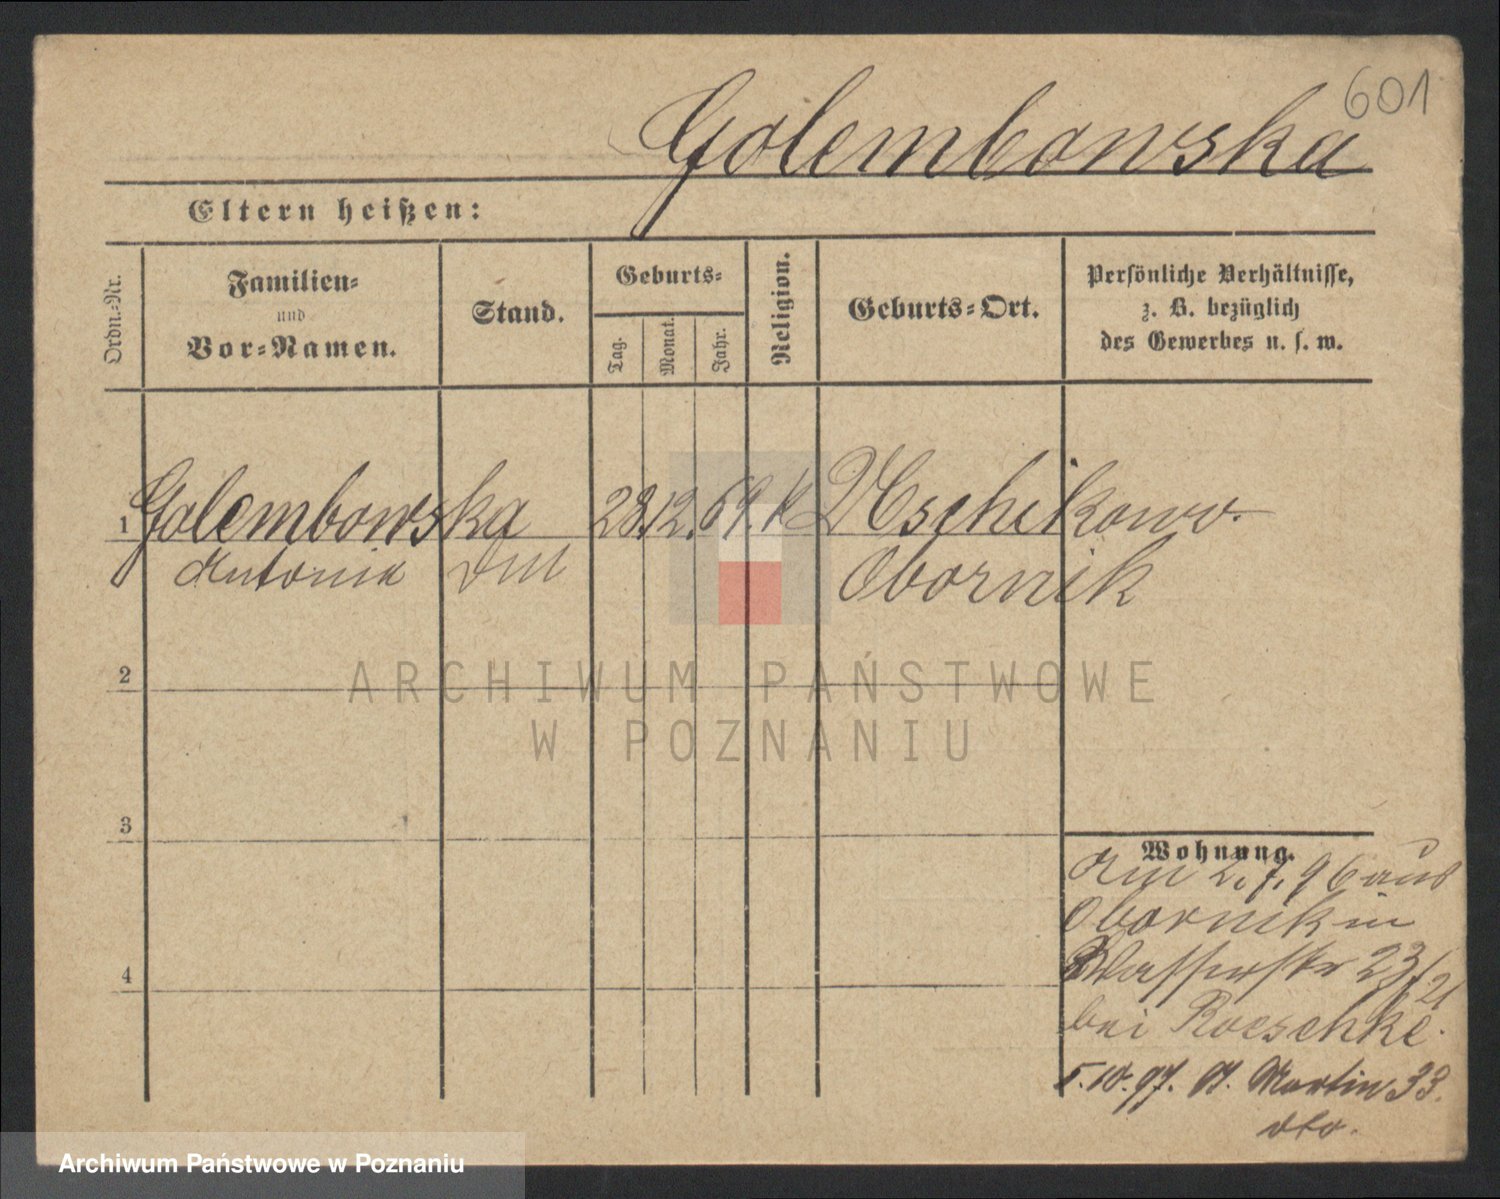 601
Golembowska
Eltern heißen:
Ordn.-Nr.
Familien-
und
Vor-Namen.
Stand.
Geburts-
Tag.
Monat.
Jahr.
Religion.
Geburts-Ort.
Persönliche Verhältnisse,
z. B. bezüglich
des Gewerbes u. s. w.
1 Golembowska 28. 12. 69. K
Antonie
Obornik
2
ARCHIWUM PAŃSTWOWE
W POZNANIU
3
Wohnung.
Am 2.7.96 aus
Obornik in
Wasserstr 23/21
bei Roeschke.
5.10.97. St. Martin 33.
dto.
4
Archiwum Państwowe w Poznaniu